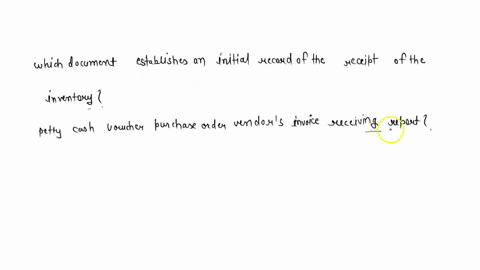 which document establishes an initial record of the receipt of the
inventory?
petty cash voucher purchase order vendor's invoice receiving report?